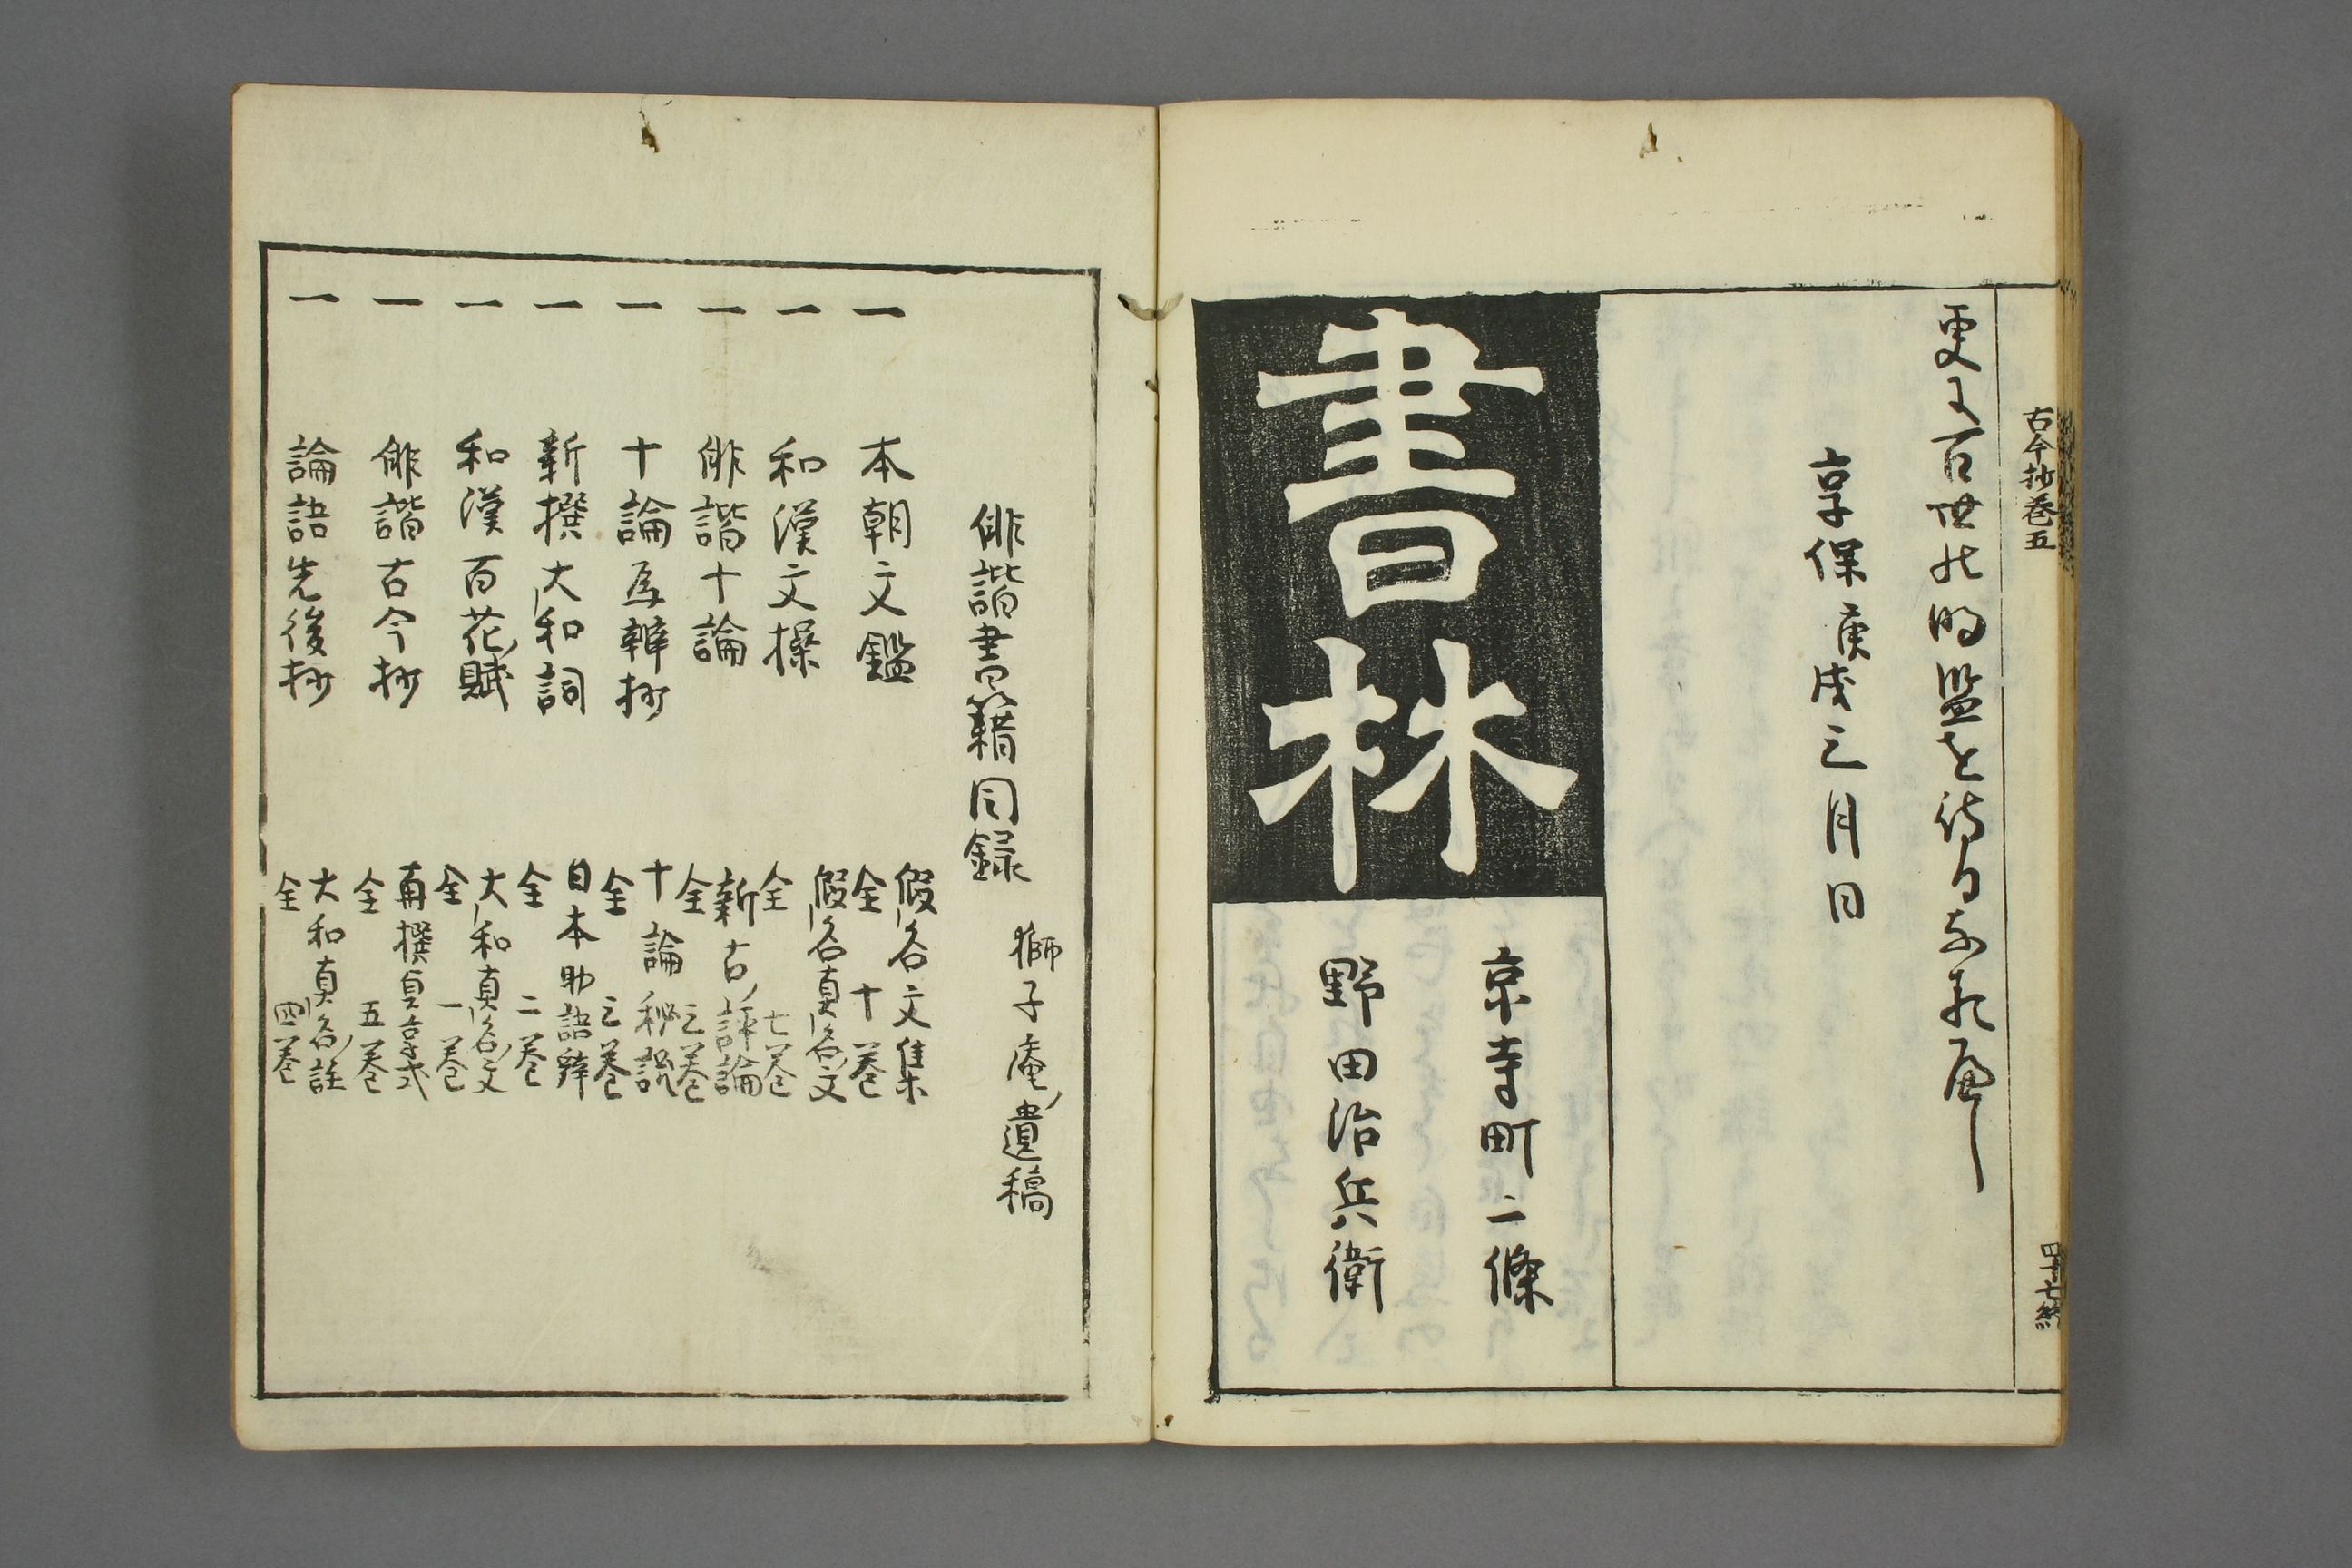 古今抄巻五
四十七終
更又百世の明監を待ものならんかし
享保庚戌三月日
書林
京寺町二條
野田治兵衛
俳諧書籍目録
獅子庵遺稿
一 本朝文鑑 假名文集 全十巻
一 和漢文操 假名真名文 全七巻
一 俳諧十論 新古評論 全三巻
一 十論為辨抄 十論秘説 全三巻
一 新撰大和詞 日本助語辭 全二巻
一 和漢百花賦 大和真名文 全一巻
一 俳諧古今抄 再撰貞享式 全五巻
一 論語先後抄 大和真名註 全四巻